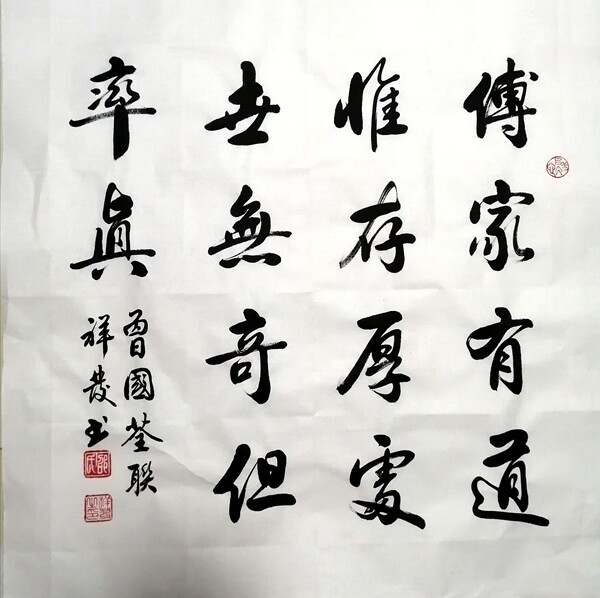 傳家有道
惟存厚處
世無奇但
率眞
曾國荃聯
祥發書